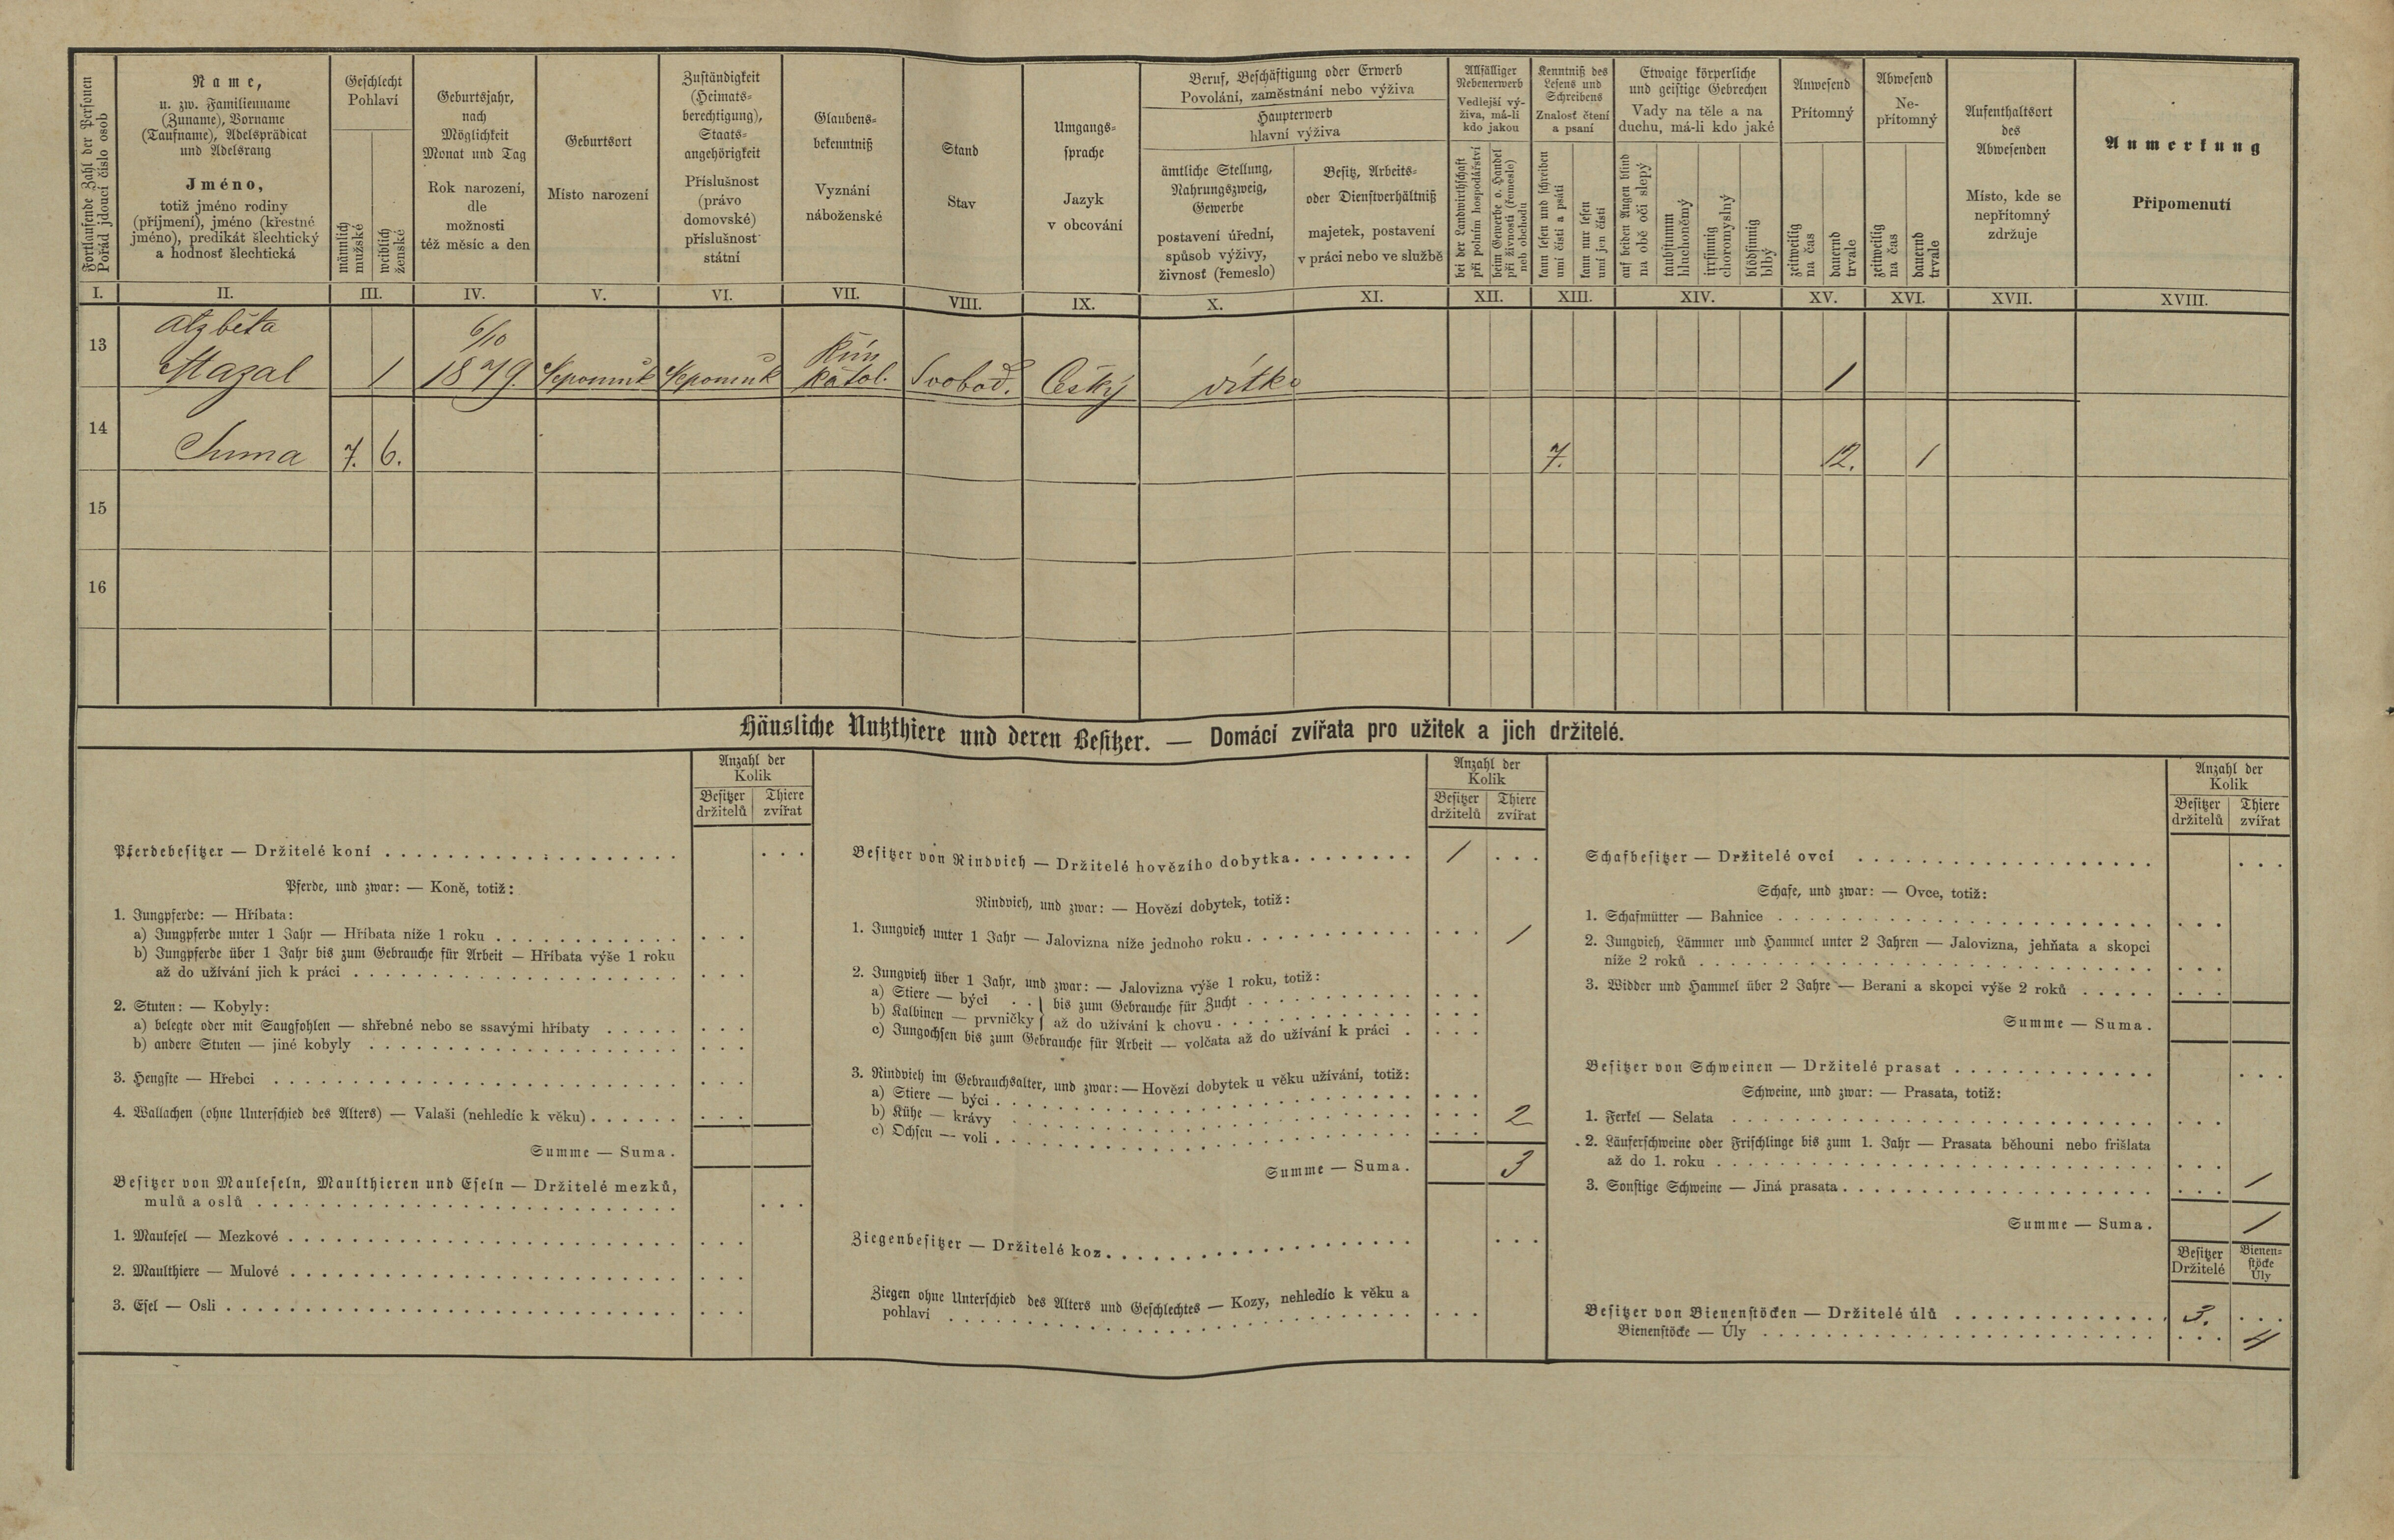 Fortlaufende Zahl der Personen
Pořád jdoucí číslo osob
Name,
u. zw. Familienname
(Zuname), Vorname
(Taufname), Adelsprädicat
und Adelsrang
Jméno,
totiž jméno rodiny
(příjmení), jméno (křestné
jméno), predikát šlechtický
a hodnosť šlechtická
Geschlecht
Pohlaví
männlich
mužské
weiblich
ženské
Geburtsjahr,
nach
Möglichkeit
Monat und Tag
Rok narození,
dle
možnosti
též měsíc a den
Geburtsort
Místo narození
Zuständigkeit
(Heimats-
berechtigung),
Staats-
angehörigkeit
Příslušnost
(právo
domovské)
příslušnost
státní
Glaubens-
bekenntniß
Vyznání
náboženské
Stand
Stav
Umgangs-
sprache
Jazyk
v obcování
Beruf, Beschäftigung oder Erwerb
Povolání, zaměstnání nebo výživa
Haupterwerb
hlavní výživa
ämtliche Stellung,
Nahrungszweig,
Gewerbe
postavení úřední,
spůsob výživy,
živnosť (řemeslo)
Besitz, Arbeits-
oder Dienstverhältniß
majetek, postavení
v práci nebo ve službě
Allfälliger
Nebenerwerb
Vedlejší vý-
živa, má-li
kdo jakou
bei der Landwirthschaft
při polním hospodářství
beim Gewerbe o. Handel
při živnosti (řemesle)
neb obchodu
Kenntniß des
Lesens und
Schreibens
Znalosť čtení
a psaní
kann lesen und schreiben
umí čísti a psáti
kann nur lesen
umí jen čísti
Etwaige körperliche
und geistige Gebrechen
Vady na těle a na
duchu, má-li kdo jaké
auf beiden Augen blind
na obě oči slepý
taubstumm
hluchoněmý
irrsinnig
choromyslný
blödsinnig
blbý
Anwesend
Přítomný
zeitweilig
na čas
dauernd
trvale
Abwesend
Ne-
přítomný
zeitweilig
na čas
dauernd
trvale
Aufenthaltsort
des
Abwesenden
Místo, kde se
nepřítomný
zdržuje
Anmerkung
Připomenutí
I. II. III. IV. V. VI. VII. VIII. IX. X. XI. XII. XIII. XIV. XV. XVI. XVII. XVIII.
Alzběta 6/10 Řím
13 Mazal 1 1879. Nepomuk Nepomuk katol. Svobod. Český dítko 1
14 Suma 7. 6. 7. 12. 1
15
16
Häusliche Nutzthiere und deren Besitzer. — Domácí zvířata pro užitek a jich držitelé.
Anzahl der
Kolik
Besitzer
držitelů
Thiere
zvířat
Pferdebesitzer — Držitelé koní
Pferde, und zwar: — Koně, totiž:
1. Jungpferde: — Hříbata:
a) Jungpferde unter 1 Jahr — Hříbata níže 1 roku
b) Jungpferde über 1 Jahr bis zum Gebrauche für Arbeit — Hříbata výše 1 roku
až do užívání jich k práci
2. Stuten: — Kobyly:
a) belegte oder mit Saugfohlen — shřebné nebo se ssavými hříbaty
b) andere Stuten — jiné kobyly
3. Hengste — Hřebci
4. Wallachen (ohne Unterschied des Alters) — Valaši (nehledíc k věku)
Summe — Suma.
Besitzer von Mauleseln, Maulthieren und Eseln — Držitelé mezků,
mulů a oslů
1. Maulesel — Mezkové
2. Maulthiere — Mulové
3. Esel — Osli
Anzahl der
Kolik
Besitzer
držitelů
Thiere
zvířat
Besitzer von Rindvieh — Držitelé hovězího dobytka 1
Rindvieh, und zwar: — Hovězí dobytek, totiž:
1. Jungvieh unter 1 Jahr — Jalovizna níže jednoho roku 1
2. Jungvieh über 1 Jahr, und zwar: — Jalovizna výše 1 roku, totiž:
a) Stiere — býci } bis zum Gebrauche für Zucht
b) Kalbinen — prvničky } až do užívání k chovu
c) Jungochsen bis zum Gebrauche für Arbeit — volčata až do užívání k práci
3. Rindvieh im Gebrauchsalter, und zwar: — Hovězí dobytek u věku užívání, totiž:
a) Stiere — býci
b) Kühe — krávy 2
c) Ochsen — voli
Summe — Suma. 3
Ziegenbesitzer — Držitelé koz
Ziegen ohne Unterschied des Alters und Geschlechtes — Kozy, nehledíc k věku a
pohlaví
Anzahl der
Kolik
Besitzer
držitelů
Thiere
zvířat
Schafbesitzer — Držitelé ovcí
Schafe, und zwar: — Ovce, totiž:
1. Schafmütter — Bahnice
2. Jungvieh, Lämmer und Hammel unter 2 Jahren — Jalovizna, jehňata a skopci
níže 2 roků
3. Widder und Hammel über 2 Jahre — Berani a skopci výše 2 roků
Summe — Suma.
Besitzer von Schweinen — Držitelé prasat
Schweine, und zwar: — Prasata, totiž:
1. Ferkel — Selata
2. Läuferschweine oder Frischlinge bis zum 1. Jahr — Prasata běhouni nebo frišlata
až do 1. roku
3. Sonstige Schweine — Jiná prasata 1
Summe — Suma. 1
Besitzer
Držitelé
Bienen-
stöcke
Úly
Besitzer von Bienenstöcken — Držitelé úlů 3.
Bienenstöcke — Úly 4